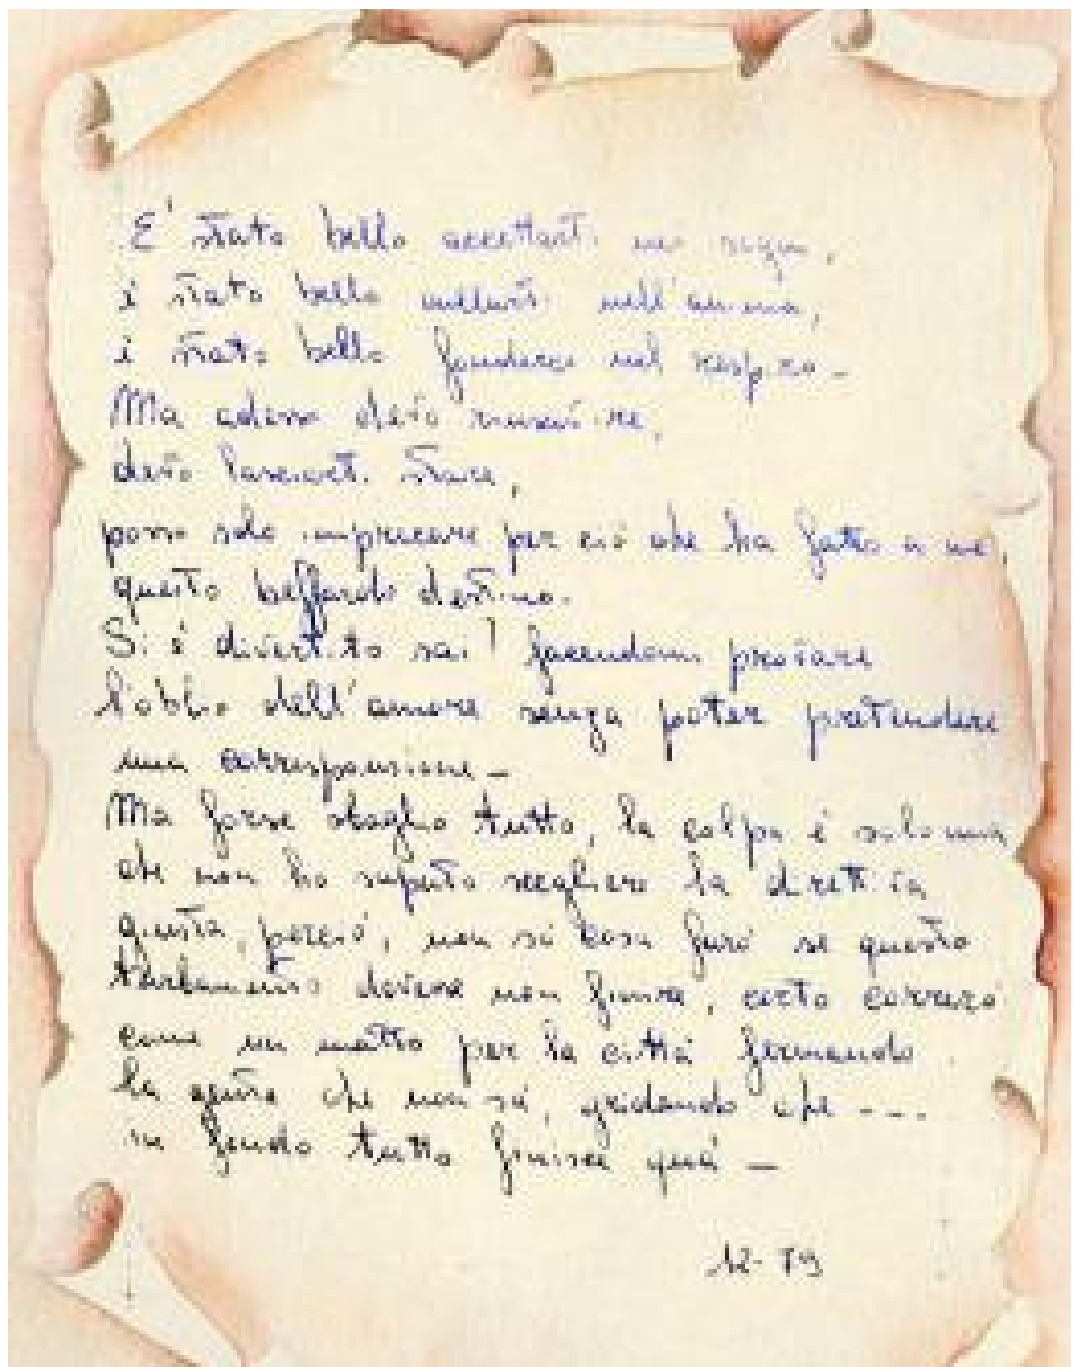 E' stato bello accettarti nei sogni,
è stato bello cullarti nell'anima,
è stato bello fonderci nel respiro -
Ma adesso devo
devo lasciarti stare,
posso solo imprecare per ciò che ha fatto a me,
questo beffardo destino.
Si è divertito sai! facendomi provare
l'oblio dell'amore senza poter pretendere
una corresponsione -
Ma forse sbaglio tutto, la colpa è solo mia
che non ho saputo scegliere la direttiva
giusta, perciò, non so cosa farò se questo
turbamento dovesse non finire, certo correrò
come un matto per la città fermando
la gente che non sa, gridando che ---
in fondo tutto finisce quà -
12-79